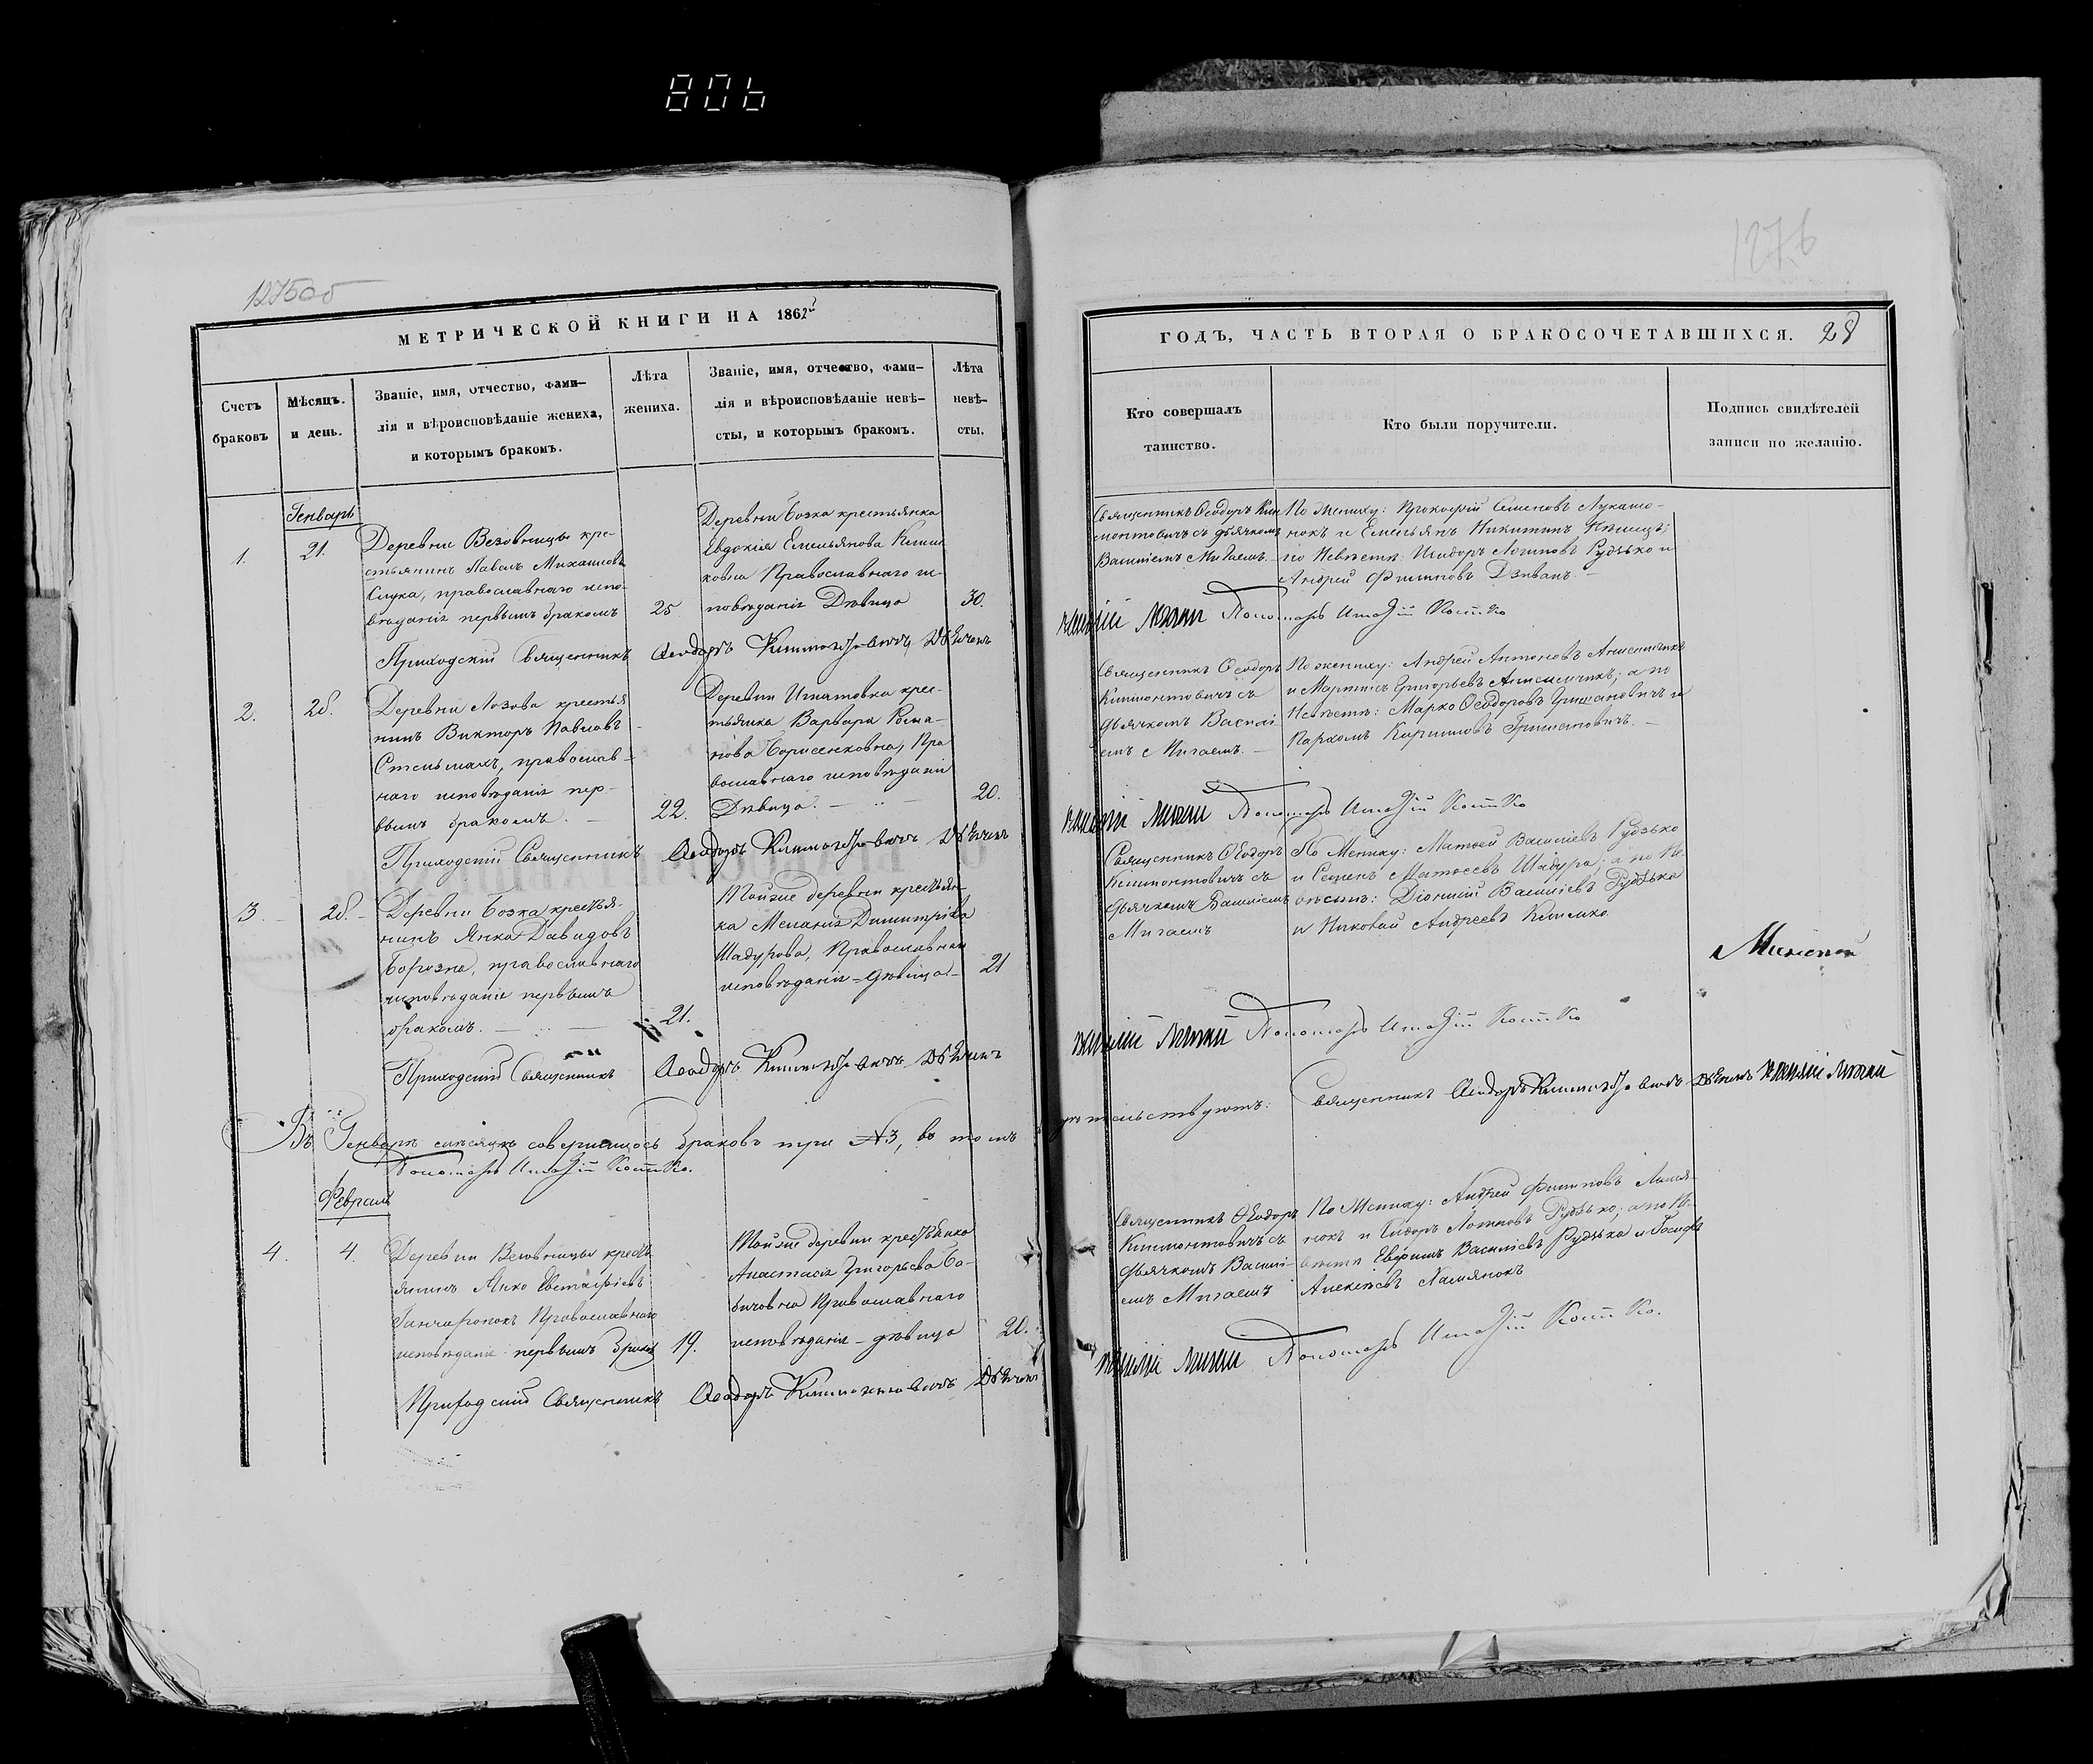 806
1275об
1276
МЕТРИЧЕСКОЙ КНИГИ НА 1862
Счетъ браковъ
Мѣсяцъ. и день.
Званіе, имя, отчество, фами-
лія и вѣроисповѣданіе жениха,
и которымъ бракомъ.
Лѣта
жениха.
Званіе, имя, отчество, фами-
лія и вѣроисповѣданіе невѣ-
сты, и которымъ бракомъ.
Лѣта
невѣ-
сты.
Генварь
1.
21.
Деревни Везовницы кре-
стьянинъ Павелъ Михаиловъ
Слука, православнаго испо-
вѣданія первымъ бракомъ
25
Деревни Бозка крестьянка
Евдокія Емельянова
Православнаго ис-
повѣданія Дѣвица
30.
Приходскій Священникъ Ѳеодоръ Климонтовичъ Дьячекъ
2.
28.
Деревни Лозова крестья
нинъ Викторъ Павловъ
Стельмахъ, православ-
наго исповѣданія пер-
вымъ бракомъ.
22.
Деревни Игнатовка крес-
тьянка Варвара Рома-
нова Борисенковна, Пра
вославнаго исповѣданія
Дѣвица.
20.
Приходскій Священникъ Ѳеодоръ Климонтовичъ Дьячекъ
3.
28.
Деревни Бозка крестья-
нинъ Янка Давидовъ
Борозна, православнаго
исповѣданія первымъ
бракомъ.
21.
Тойже деревни крестьян-
ка Меланія Димитріева
Шадурова, Православнаго
исповѣданія - дѣвица
21
Приходскій Священникъ Ѳеодоръ Климонтовичъ Дьячекъ
Въ Генварѣ мѣсяцѣ совершилось браковъ три №3, въ томъ
Пономарь Игнатій Костко.
Февраль
4.
4.
Деревни Везовницы кресть
янинъ Янко Евстафіевъ
Гончаронокъ Православнаго
исповѣданія первымъ браком
19.
Тойже деревни крестьянка
Анастасія Григорьева Ба-
Православнаго
исповѣданія - дѣвица
20.
Приходскій Священникъ Ѳеодоръ Климонтовичъ Дьячекъ
ГОДЪ, ЧАСТЬ ВТОРАЯ О БРАКОСОЧЕТАВШИХСЯ.
28
Кто совершалъ
таинство.
Кто были поручители.
Подпись свидѣтелей
записи по желанію.
Священникъ Ѳеодоръ Кли
монтовичъ съ дьячкомъ
Василіемъ Мигаемъ.
По Жениху: Прокофій Семеновъ Лукашо-
нокъ и Емельянъ Никитинъ
по Невѣстѣ: Исидоръ Логиновъ Рудзько и
Андрей Филиповъ Дзиванъ.
Василій Мигай Пономарь Игнатій Костко
Священникъ Ѳеодоръ
Климонтовичъ съ
дьячкомъ Василі
емъ Мигаемъ.
По жениху: Андрей Антоновъ Анисимчикъ
и Мартинъ Григорьевъ Анисимчикъ; а по
Невѣстѣ: Марко Ѳеодоровъ Гришановичъ и
Пархомъ Кириловъ Гришановичъ.
Василій Мигай Пономарь Игнатій Костко
Священникъ Ѳеодоръ
Климонтовичъ съ
дьячкомъ Василіемъ
Мигаемъ
По Жениху: Матвей Василіевъ Рудзько
и Семенъ Матвеевъ Шадура; а по Не
вѣстѣ: Діонисій Василіевъ Рудзька
и Николай Андреевъ
Василій Мигай Пономарь Игнатій Костко
Священникъ Ѳеодоръ Климонтовичъ Дьячекъ Василій Мигай
Священникъ Ѳеодоръ
Климонтовичъ съ
дьячкомъ Василі-
емъ Мигаемъ
По Жениху: Андрей Филиповъ
нокъ и Сидоръ Логиновъ Рудзько; а по Не-
вѣстѣ Евфимъ Василіевъ Рудзька и
Алексѣевъ
Василій Мигай Пономарь Игнатій Костко.